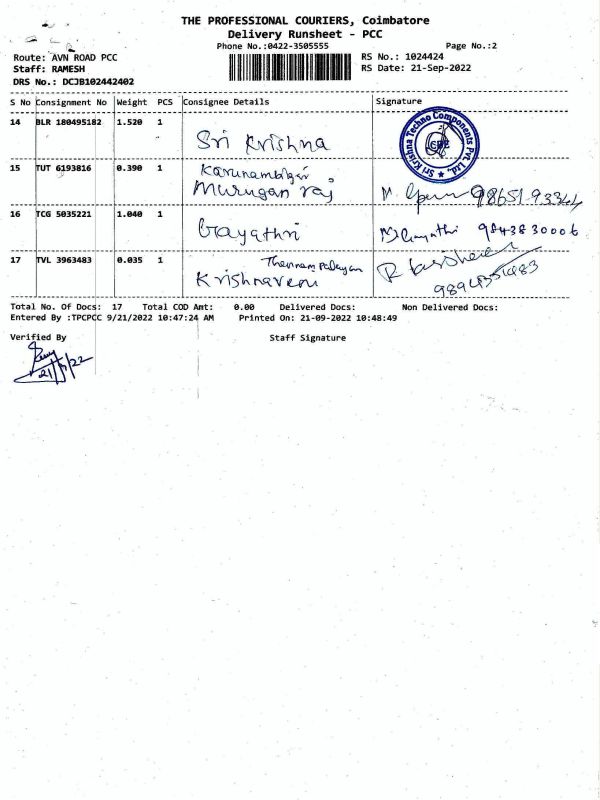 THE PROFESSIONAL COURIERS, Coimbatore
Delivery Runsheet - PCC
Phone No.:0422-3505555 Page No.:2
Route: AVN ROAD PCC RS No.: 1024424
Staff: RAMESH RS Date: 21-Sep-2022
DRS No.: DCJB102442402
S No Consignment No Weight PCS Consignee Details Signature
14 BLR 180495182 1.520 1
Sri Krishna
Sri Krishna Techno Components Pvt Ltd.,
15 TUT 6193816 0.390 1 Karunambigai
Murugan raj 98651 93344
16 TCG 5035221 1.040 1
Gayathri Gayathri 9843830006
17 TVL 3963483 0.035 1 Thennampalayam
Krishnaveni
Total No. Of Docs: 17 Total COD Amt: 0.00 Delivered Docs: Non Delivered Docs:
Entered By :TPCPCC 9/21/2022 10:47:24 AM Printed On: 21-09-2022 10:48:49
Verified By Staff Signature